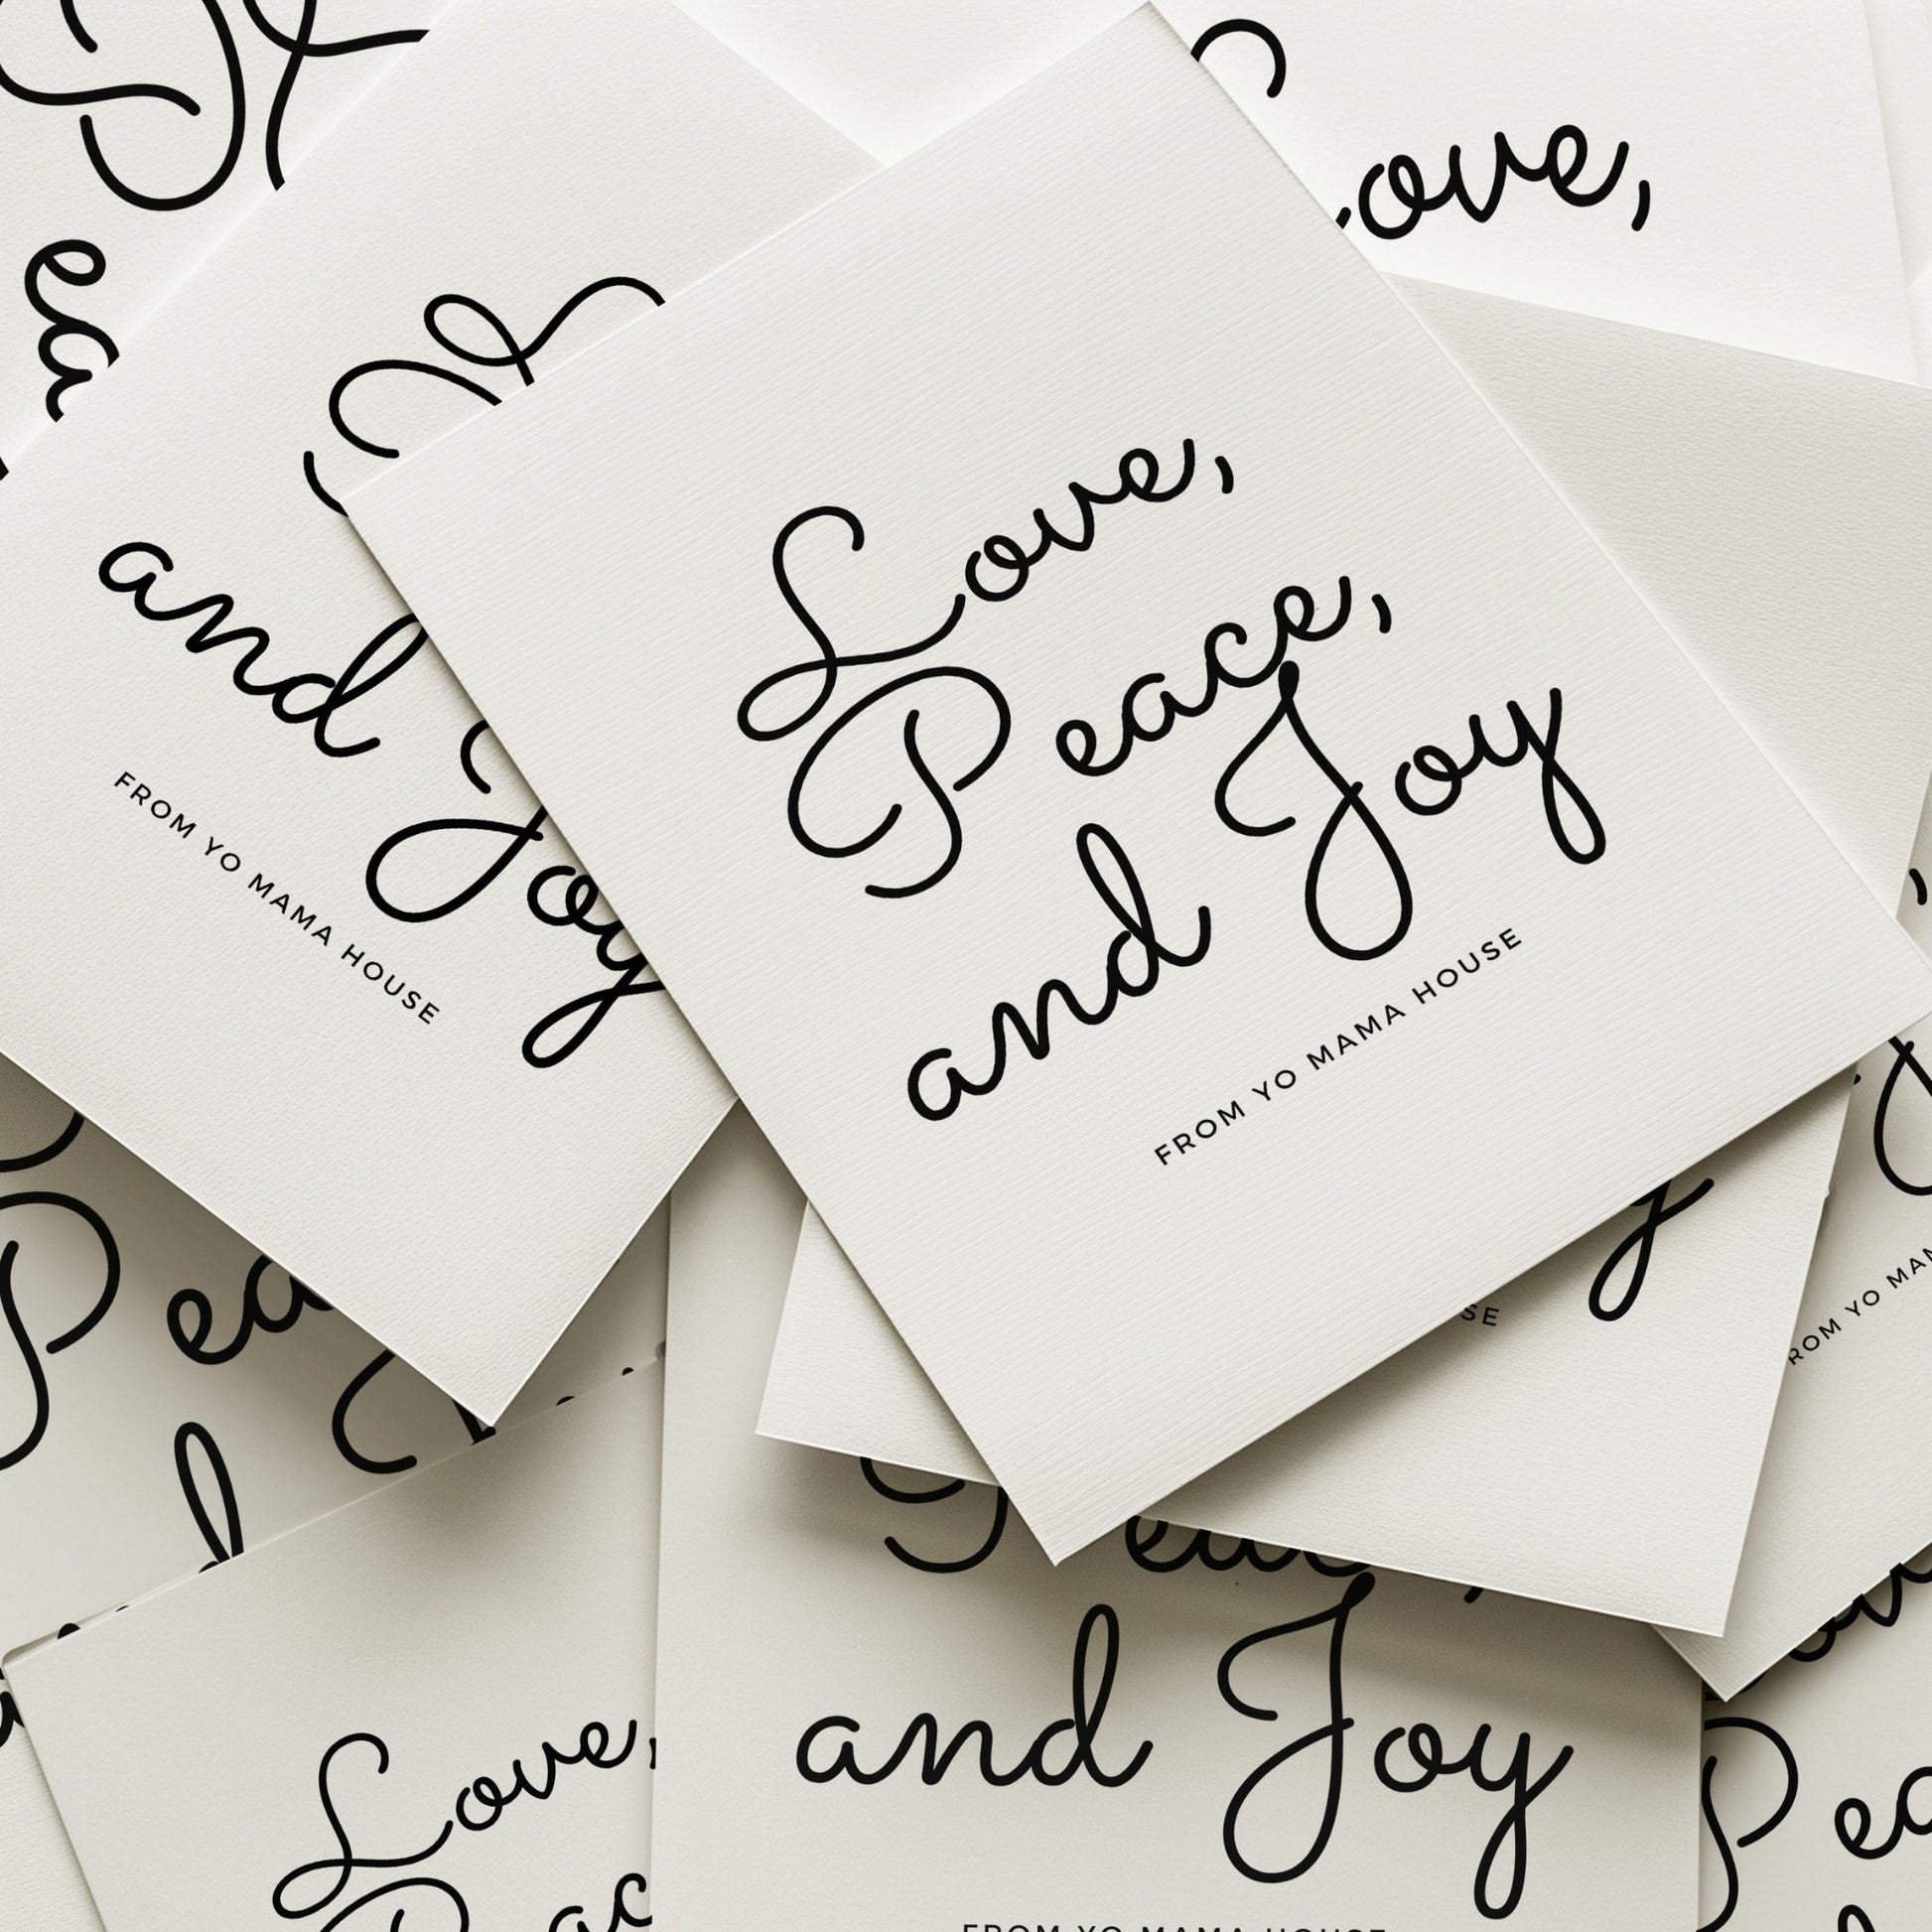 Love,
Peace,
and Joy
FROM YO MAMA HOUSE
and Joy
FROM YO MAMA HOUSE
ove,
Love,
and Joy
FROM YO MAMA HOUSE